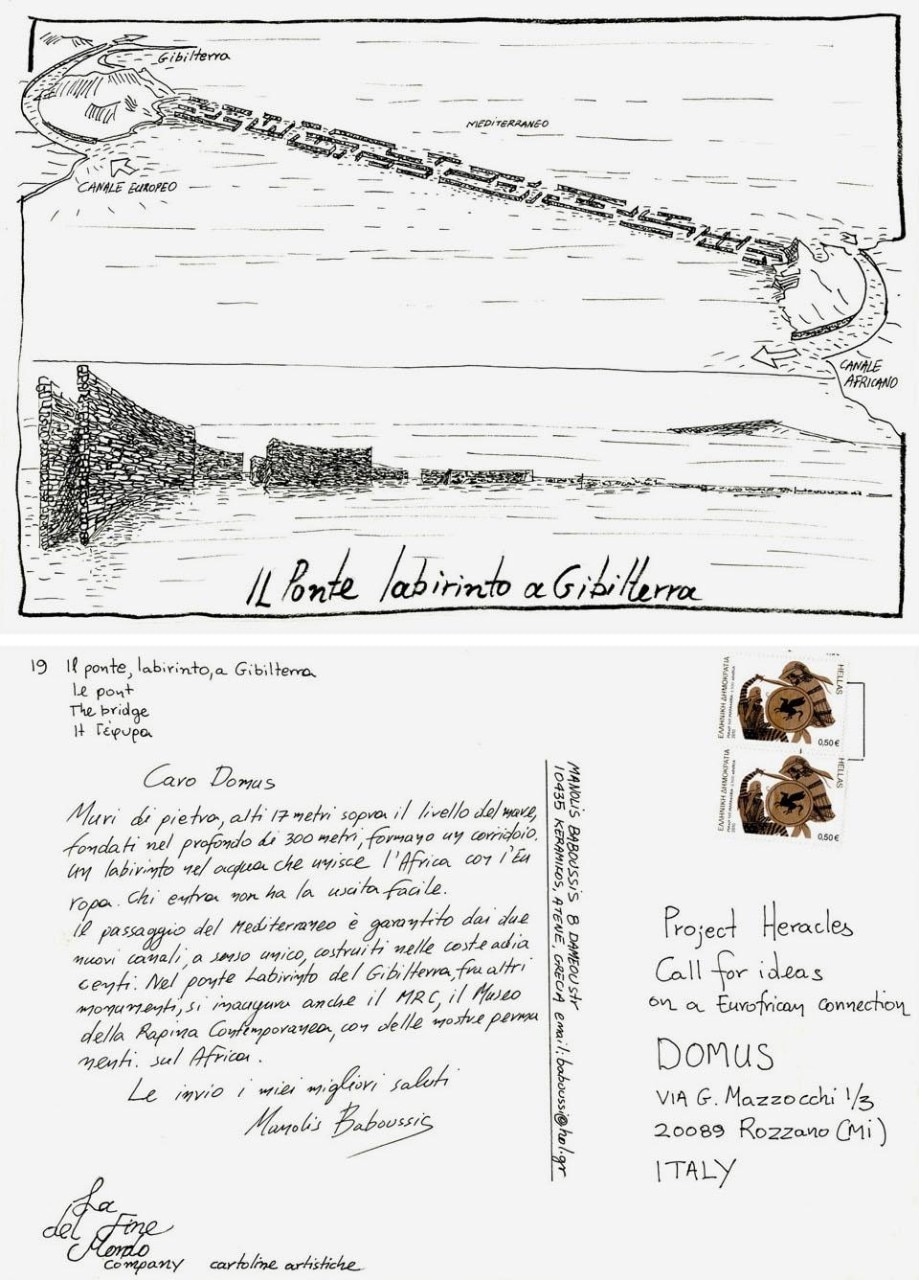 Gibilterra
MEDITERRANEO
CANALE EUROPEO
CANALE
AFRICANO
IL Ponte labirinto a Gibilterra
19 Il ponte, labirinto, a Gibilterra
Le pont
The bridge
Η Γέφυρα
Caro Domus
Muri di pietra, alti 17 metri sopra il livello del mare,
fondati nel profondo di 300 metri, formano un corridoio.
Un labirinto nel acqua che unisce l'Africa con l'Eu
ropa. Chi entra non ha la uscita facile.
Il passaggio del Mediterraneo è garantito dai due
nuovi canali, a senso unico, costruiti nelle coste adia
centi. Nel ponte Labirinto del Gibilterra, fra altri
monumenti, si inaugura anche il MRC, il Museo
della Rapina Contemporanea, con delle mostre perma
nenti. sul Africa.
Le invio i miei migliori saluti
Manolis Baboussis
La
Fine
del
Mondo
company cartoline artistiche
MANOLIS BABOUSSIS 8 DAMEOU str
10435 KERAMIKOS, ATENE, GRECIA email: baboussi@hol.gr
ΕΛΛΗΝΙΚΗ ΔΗΜΟΚΡΑΤΙΑ
HELLAS
0,50€
ΕΛΛΗΝΙΚΗ ΔΗΜΟΚΡΑΤΙΑ
HELLAS
0,50€
Project Heracles
Call for ideas
on a Eurofrican connection
DOMUS
VIA G. Mazzocchi 1/3
20089 Rozzano (Mi)
ITALY